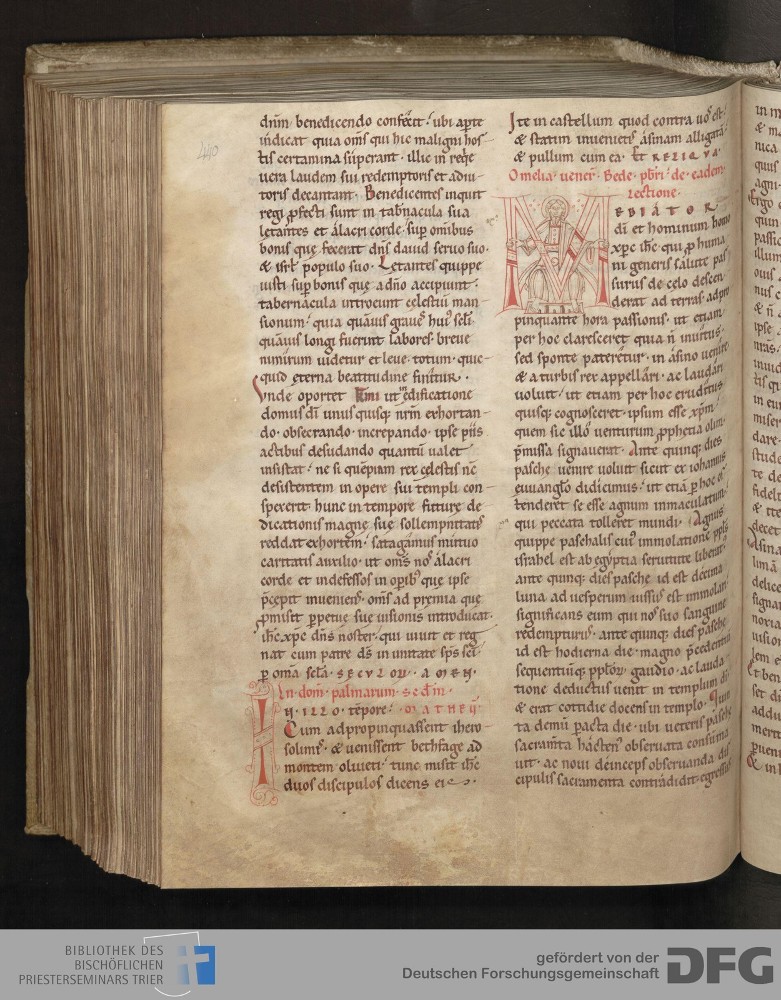 440
dnm̄ benedicendo confexit· ubi aperte
indicat quia om̅s qui hic maligni hos
tis certamina superant· illic in req̇e
uera laudem sui redemptoris et adiu
toris decantant· Benedicentes inquit
regi p̱fecti sunt in tab̅nacula sua
letantes et alacri corde· sup̱ omnibus
bonis que fecerat dn̅s dauid seruo suo·
& isrl̅ populo suo· Letantes quippe
iusti sup̱ bonis que a dn̅o accipiunt·
tabernacula introeunt celestiū man
sionum· quia quāuis graues hui᷒ scl̅i
quāuis longi fuerint labores· breue
nimirum uidetur et leue totum· quic
quid eterna beatitudine finitur·
Vnde oportet ut edificatione
domus di̅ unusquisq; nr̅m exhortan
do· obsecrando· increpando· ipse piis
actibus desudando quantū ualet
insistat· ne si quēpiam rex celestis n̅c
desistentem in opere sui templi con
spexerit· hunc in tempore future de
dicationis magne sue sollempnitatis
reddat exhortem· satagamus mutuo
caritatis auxilio· ut om̅s nos alacri
corde et indefessos in opib᷒ que ipse
p̅cepit inueniens· om̅s ad premia que
p̱misit p̱petue sue uisionis introducat·
ih̅c xp̅c dn̅s noster· qui uiuit et reg
nat cum patre d̅s in unitate sp̅s sc̅i·
p̱ om̅a scl̅a· SECVLORV· AMEN·
In dom̅· palmarum· scd̅m
IN· ILLO· tēpore· MATHEV̅
Cum adpropinquassent ihero
solimis· & uenissent bethfage ad
montem oliueti· tunc misit ih̅c
duos discipulos dicens eis·
Ite in castellum quod contra uos est·
& statim inuenietis asinam alligatā
& pullum cum ea· Et RELIQVA·
Omelia· uener̅· Bede· pb̅ri· de· eadem·
lectione·
MEDIATOR
di̅ et hominum homo
xp̅c ih̅c· qui p̱ huma
ni generis salute pas
surus de celo descen
derat ad terras· adpro
pinquante hora passionis· ut etiam
per hoc claresceret quia n̅ inuitus·
sed sponte pateretur· in asino uenire
& a turbis rex appellari· ac laudari
uoluit· ut etiam per hoc eruditus
quisq; cognosceret· ipsum esse xp̅m·
quem sic illo uenturum p̱phetia olim
p̅missa signauerat· Ante quinq; dies
pasche uenire uoluit sicut ex iohannis
euuangl̅o didicimus· ut etiā p̱ hoc os
tenderet se esse agnum inmaculatum·
qui peccata tolleret mundi· Agnus
quippe paschalis cui᷒ immolatione ppl̅s
israhel est ab egyptia seruitute liberat᷒
ante quinq; dies pasche id est decima
luna ad uesperum iussus est immolari
significans eum qui nos suo sanguine
redempturus· ante quinq; dies pasche
id est hodierna die· magno p̅cedentiū
sequentiūq; pplōr̅ gaudio· ac lauda
tione deductus uenit in templum di̅
& erat cottidie docens in templo· Tum
ta demū p̱acta die· ubi ueteris pasche
sacram̅ta hacten᷒ obseruata consūma
uit· ac noui deinceps obseruanda dis
cipulis sacramenta contradidit· egressus
BIBLIOTHEK DES
BISCHÖFLICHEN
PRIESTERSEMINARS TRIER
gefördert von der
Deutschen Forschungsgemeinschaft
DFG